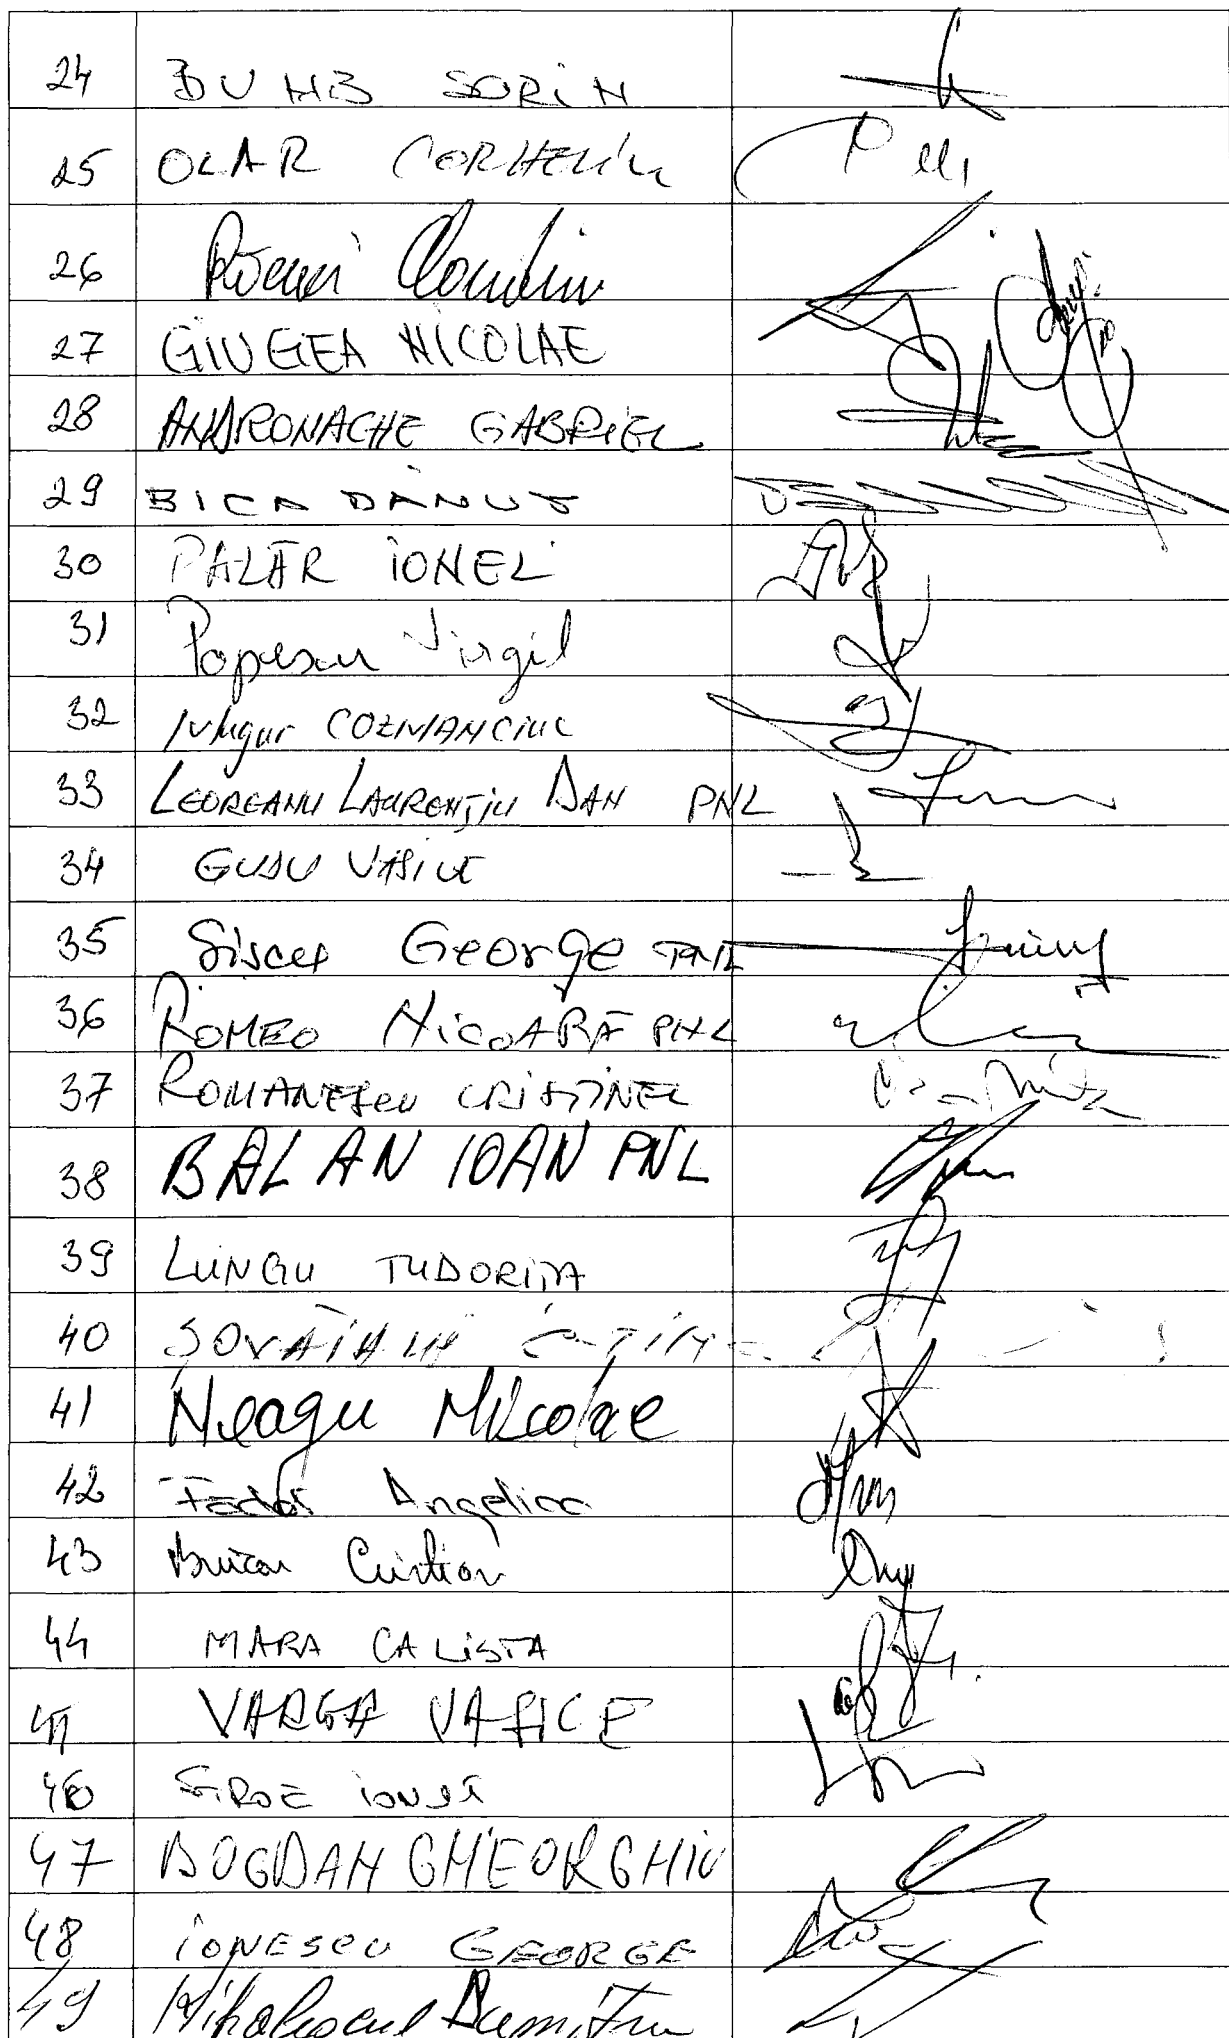 24 BUMB SORIN
25 OLAR CORNELIU
26
27 GIUGEA NICOLAE
28 ANDRONACHE GABRIEL
29 BICA DĂNUȚ
30 PALĂR IONEL
31 Popescu Virgil
32 Mugur COZMANCIUC
33 LEOREANU LAURENȚIU DAN PNL
34 GUDU VASILE
35 Șișcu George PNL
36 ROMEO NICOARĂ PNL
37 ROMANESCU CRISTINEL
38 BALAN IOAN PNL
39 LUNGU TUDORIȚA
40 ȘOVĂIALĂ
41 Neagu Nicolae
42 Fădor Angelica
43 Buican Cristian
44 MARA CALISTA
45 VARGA VASILE
46 STROE IONUȚ
47 BOGDAN GHEORGHIU
48 IONESCU GEORGE
49 Mihalescul Dumitru